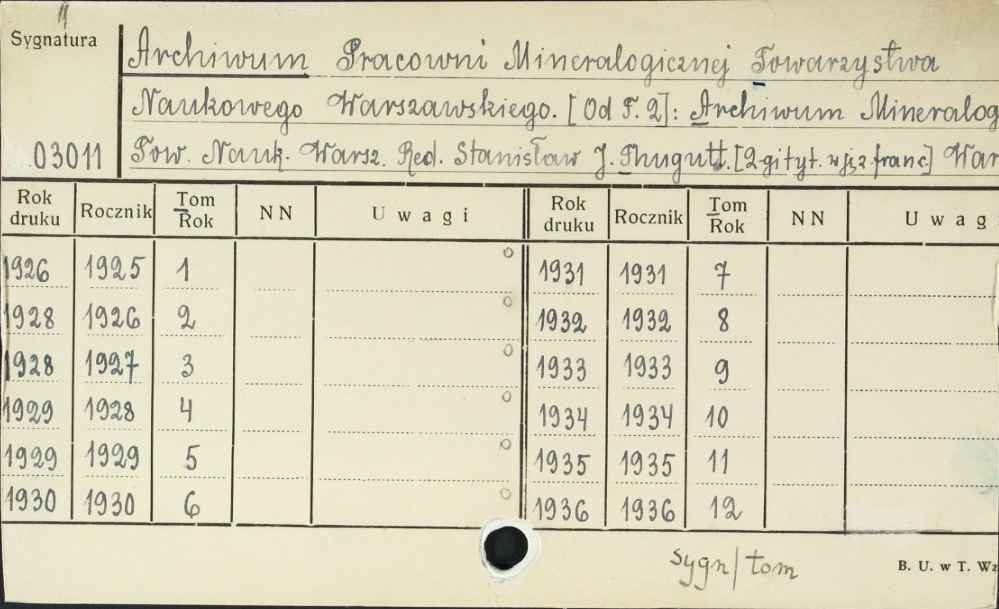 Sygnatura
Archiwum Pracowni Mineralogicznej Towarzystwa
Naukowego Warszawskiego. [Od T. 2]: Archiwum Mineralog
03011 Tow. Nauk. Warsz. Red. Stanisław J. Thugutt. [2-gi tyt. w jęz. franc] War
Rok druku Rocznik Tom Rok NN Uwagi Rok druku Rocznik Tom Rok NN Uwag
1926 1925 1 1931 1931 7
1928 1926 2 1932 1932 8
1928 1927 3 1933 1933 9
1929 1928 4 1934 1934 10
1929 1929 5 1935 1935 11
1930 1930 6 1936 1936 12
sygn/tom
B. U. w T. Wz